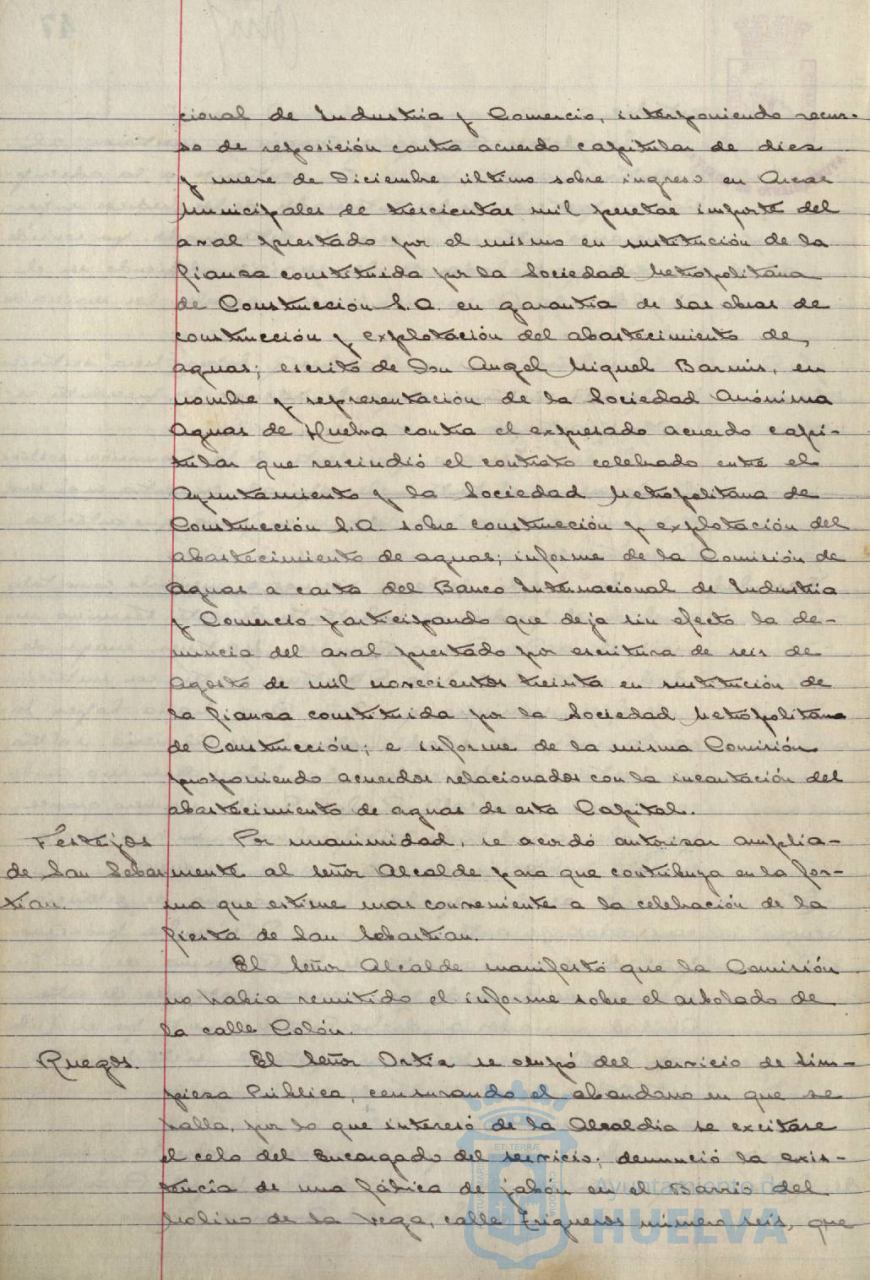 cional de Industria y Comercio, interponiendo recur-
so de reposición contra acuerdo capitular de diez
y nueve de Diciembre último sobre ingreso en Arcas
Municipales de trescientas mil pesetas importe del
aval prestado por el mismo en sustitución de la
fianza constituida por la Sociedad Metropolitana
de Construcción S.A. en garantía de las obras de
construcción y explotación del abastecimiento de
aguas; escrito de Don Angel Miguel Barmis, en
nombre y representación de la Sociedad Anónima
Aguas de Huelva contra el expresado acuerdo capi-
tular que rescindió el contrato celebrado entre el
Ayuntamiento y la Sociedad Metropolitana de
Construcción S.A. sobre construcción y explotación del
abastecimiento de aguas; informe de la Comisión de
Aguas a carta del Banco Internacional de Industria
y Comercio participando que deja sin efecto la de-
nuncia del aval prestado por escritura de seis de
Agosto de mil novecientos treinta en sustitución de
la fianza constituida por la Sociedad Metropolitana
de Construcción; e informe de la misma Comisión
proponiendo acuerdos relacionados con la incautación del
abastecimiento de aguas de esta Capital.
Festejos de San Sebas tian.
Por unanimidad, se acordó autorizar amplia-
mente al señor Alcalde para que contribuya en la for-
ma que estime mas conveniente a la celebración de la
fiesta de San Sebastian.
El Señor Alcalde manifestó que la Comisión
no habia remitido el informe sobre el arbolado de
la calle Colón.
Ruegos.
El Señor Ortiz se ocupó del servicio de Lim-
pieza Pública, censurando el abandono en que se
halla, por lo que interesó de la Alcaldia se excitase
el celo del Encargado del servicio; denunció la exis-
tencia de una fábrica de jabón en el Barrio del
Molino de la Vega, calle Trigueros número seis, que
Ayuntamiento de
HUELVA